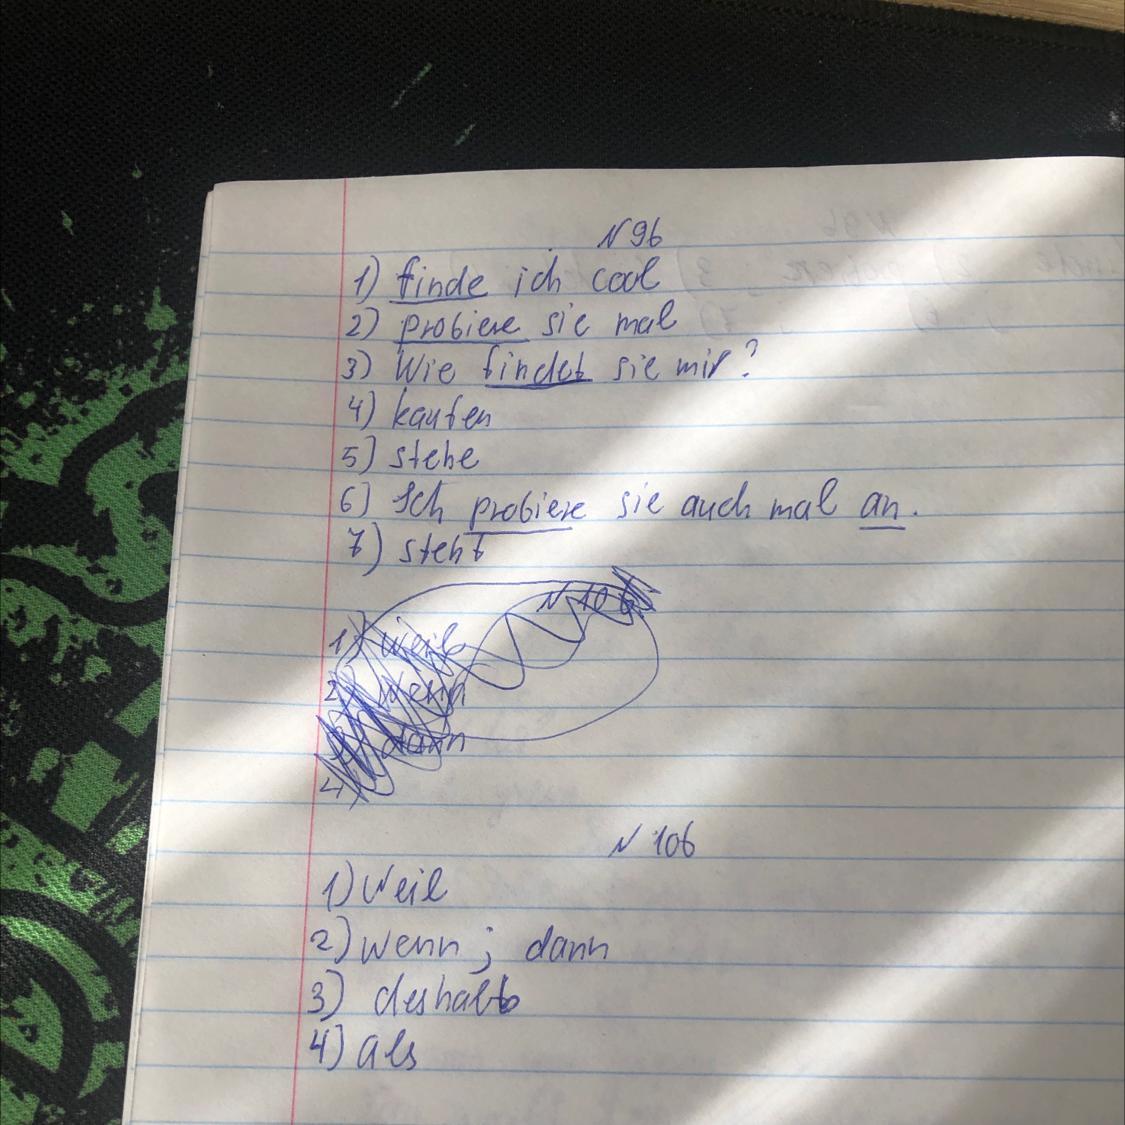 N 9b
1) finde ich cool
2) probiere sie mal
3) Wie findet sie mir?
4) kaufen
5) stehe
6) Ich probiere sie auch mal an.
7) steht
N 10b
1) weil
2) wenn
dann
4)
N 10b
1) Weil
2) wenn; dann
3) deshalb
4) als